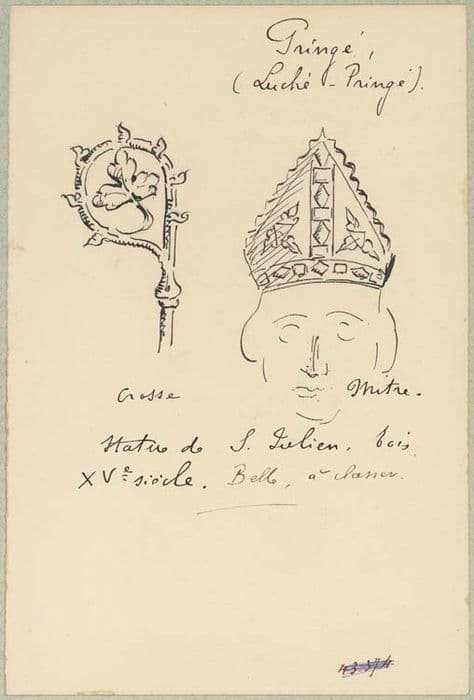 Pringé,
(Luché-Pringé).
Crosse
Mitre.
Statue de S. Julien, bois
XVe siècle. Belle, à classer.